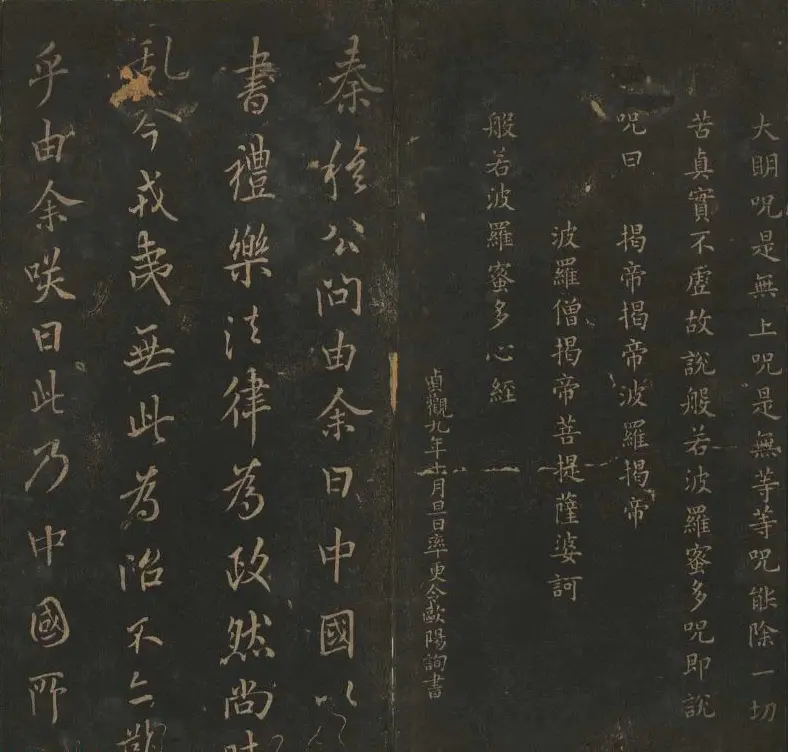 大明咒是無上咒是無等等咒能除一切
苦真實不虛故說般若波羅蜜多咒即說
咒曰 揭帝揭帝波羅揭帝
波羅僧揭帝菩提薩婆訶
般若波羅蜜多心經
貞觀九年十月旦日率更令歐陽詢書
秦穆公問由余曰中國以
書禮樂法律為政然尚時
乱今戎夷無此為治不亦難
乎由余咲曰此乃中國所